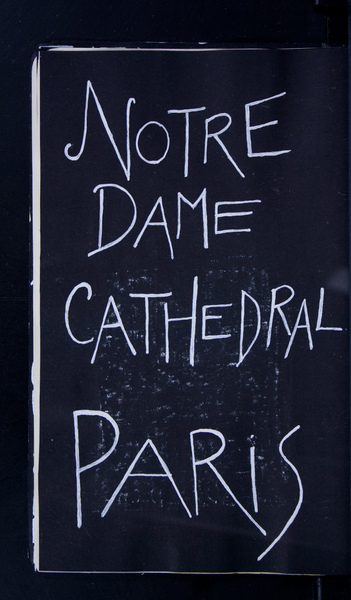 NOTRE
DAME
CATHEDRAL
PARIS